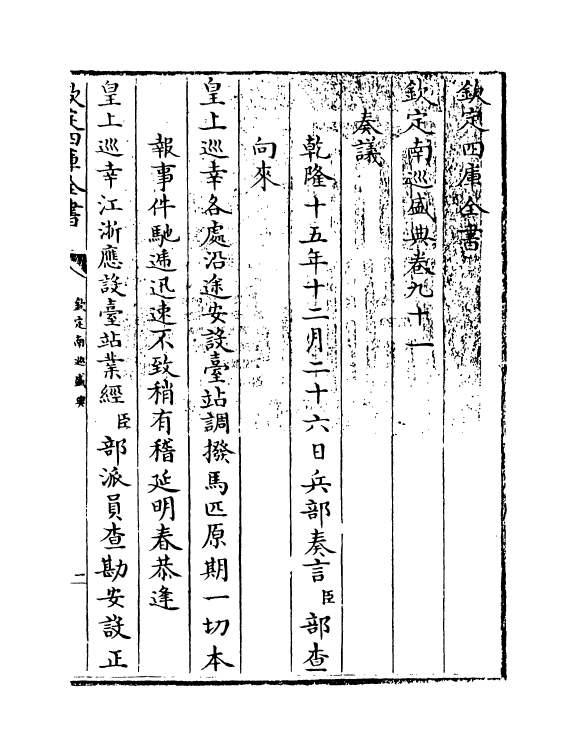 欽定四庫全書
欽定南巡盛典卷九十一
奏議
乾隆十五年十二月二十六日兵部奏言臣部查
向來
皇上巡幸各處沿途安設臺站調撥馬匹原期一切本
報事件馳遞迅速不致稍有稽延明春恭逢
皇上巡幸江浙應設臺站業經臣部派員查勘安設正
欽定四庫全書
欽定南巡盛典